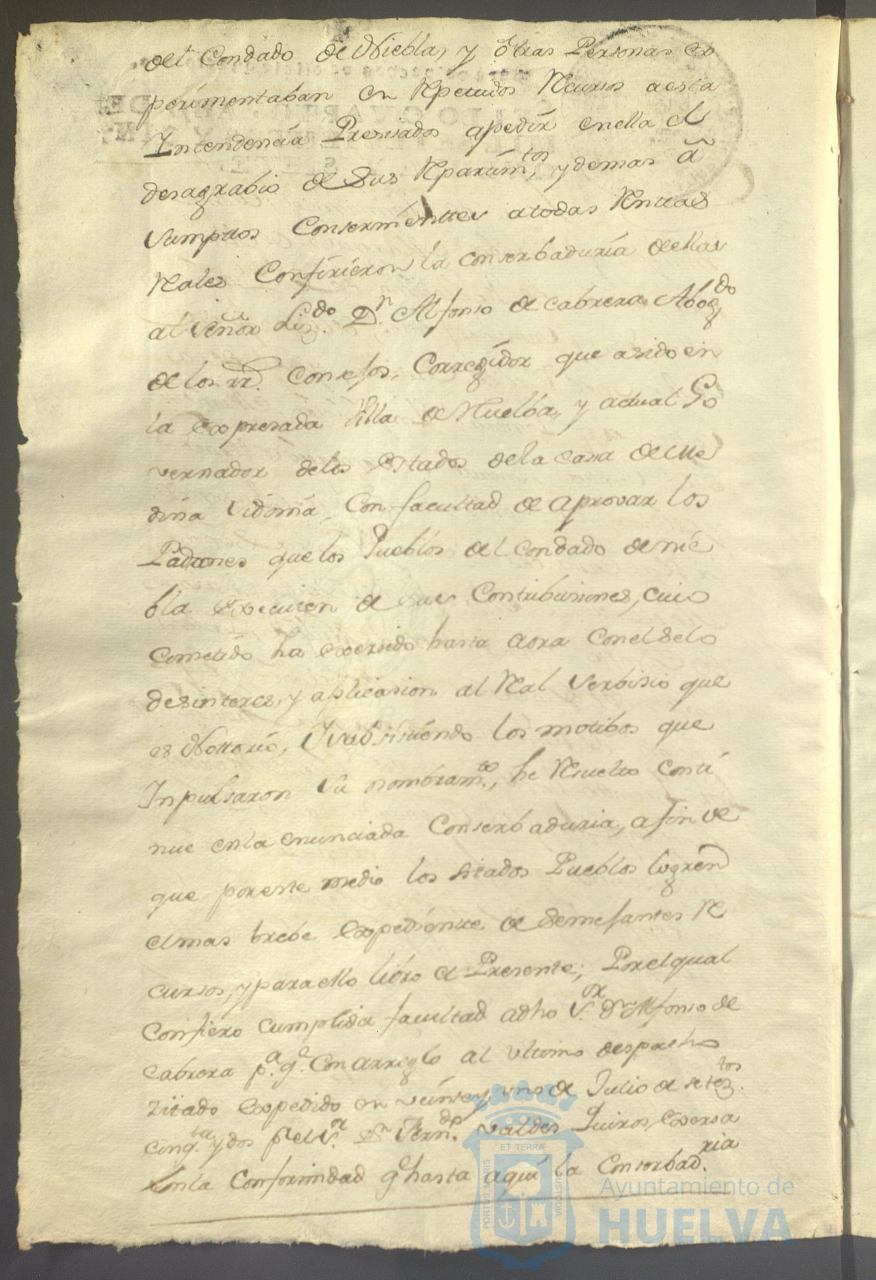 del Condado de Niebla, y otras Personas ex
perimentaban en Repetidos Recursos a esta
Intendencia Presisados apedir en ella el
desagrabio de sus Repartim.tos, y demas
Consernientes atodas Rentas
Reales Confirieron la conserbaduria de ellas
al Señor Liz.do D.n Alfonso de Cabrera Abog.do
de los rr.s Consejos, Corregidor que asido en
la expresada Villa de Huelba, y actual Go
vernador de los estados de la casa de Me
dina Sidonia, Con facultad de aprovar los
Padrones que los Pueblos del condado de nie
bla executen de sus Contribusiones, cuio
Cometido ha exersido hasta aora Con el selo
desinteres, y aplicasion al Real Serbisio que
es Nottorio, Y subsistiendo los motibos que
Inpulsaron su nombram.to, he Resuelto Conti
nue en la enunciada Conserbaduria, afin de
que por este medio los sitados Pueblos logren
el mas brebe expediente de semejantes Re
cursos, y para ello libro el Presente; Por el qual
Confiero cumplida facultad a dho S.or D.n Alfonso de
Cabrera p.a q.e Con arreglo al ultimo despacho
zitado expedido en veinte y uno de Julio de setez.tos
cinq.ta y dos p.r el S.r D.n Fern.do Valdes Quiros, exersa
en la Conformidad q.e hasta aqui la Conserbad.ria
ET TERRÆ
PORTUS MARIS
CUSTODIA
Ayuntamiento de
HUELVA